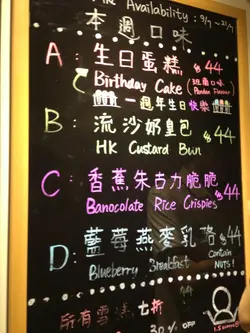 Availability : 9/7 ~ 21/7
本週口味
A : 生日蛋糕 $44
Birthday Cake (班蘭口味)
(Pandan Flavour)
一週年生日快樂
B : 流沙奶皇包 $44
HK Custard Bun
C : 香蕉朱古力脆脆 $44
Banocolate Rice Crispies
D : 藍莓燕麥乳酪 $44
Blueberry Breakfast Contain NUTS!
所有雪糕 七折
30%